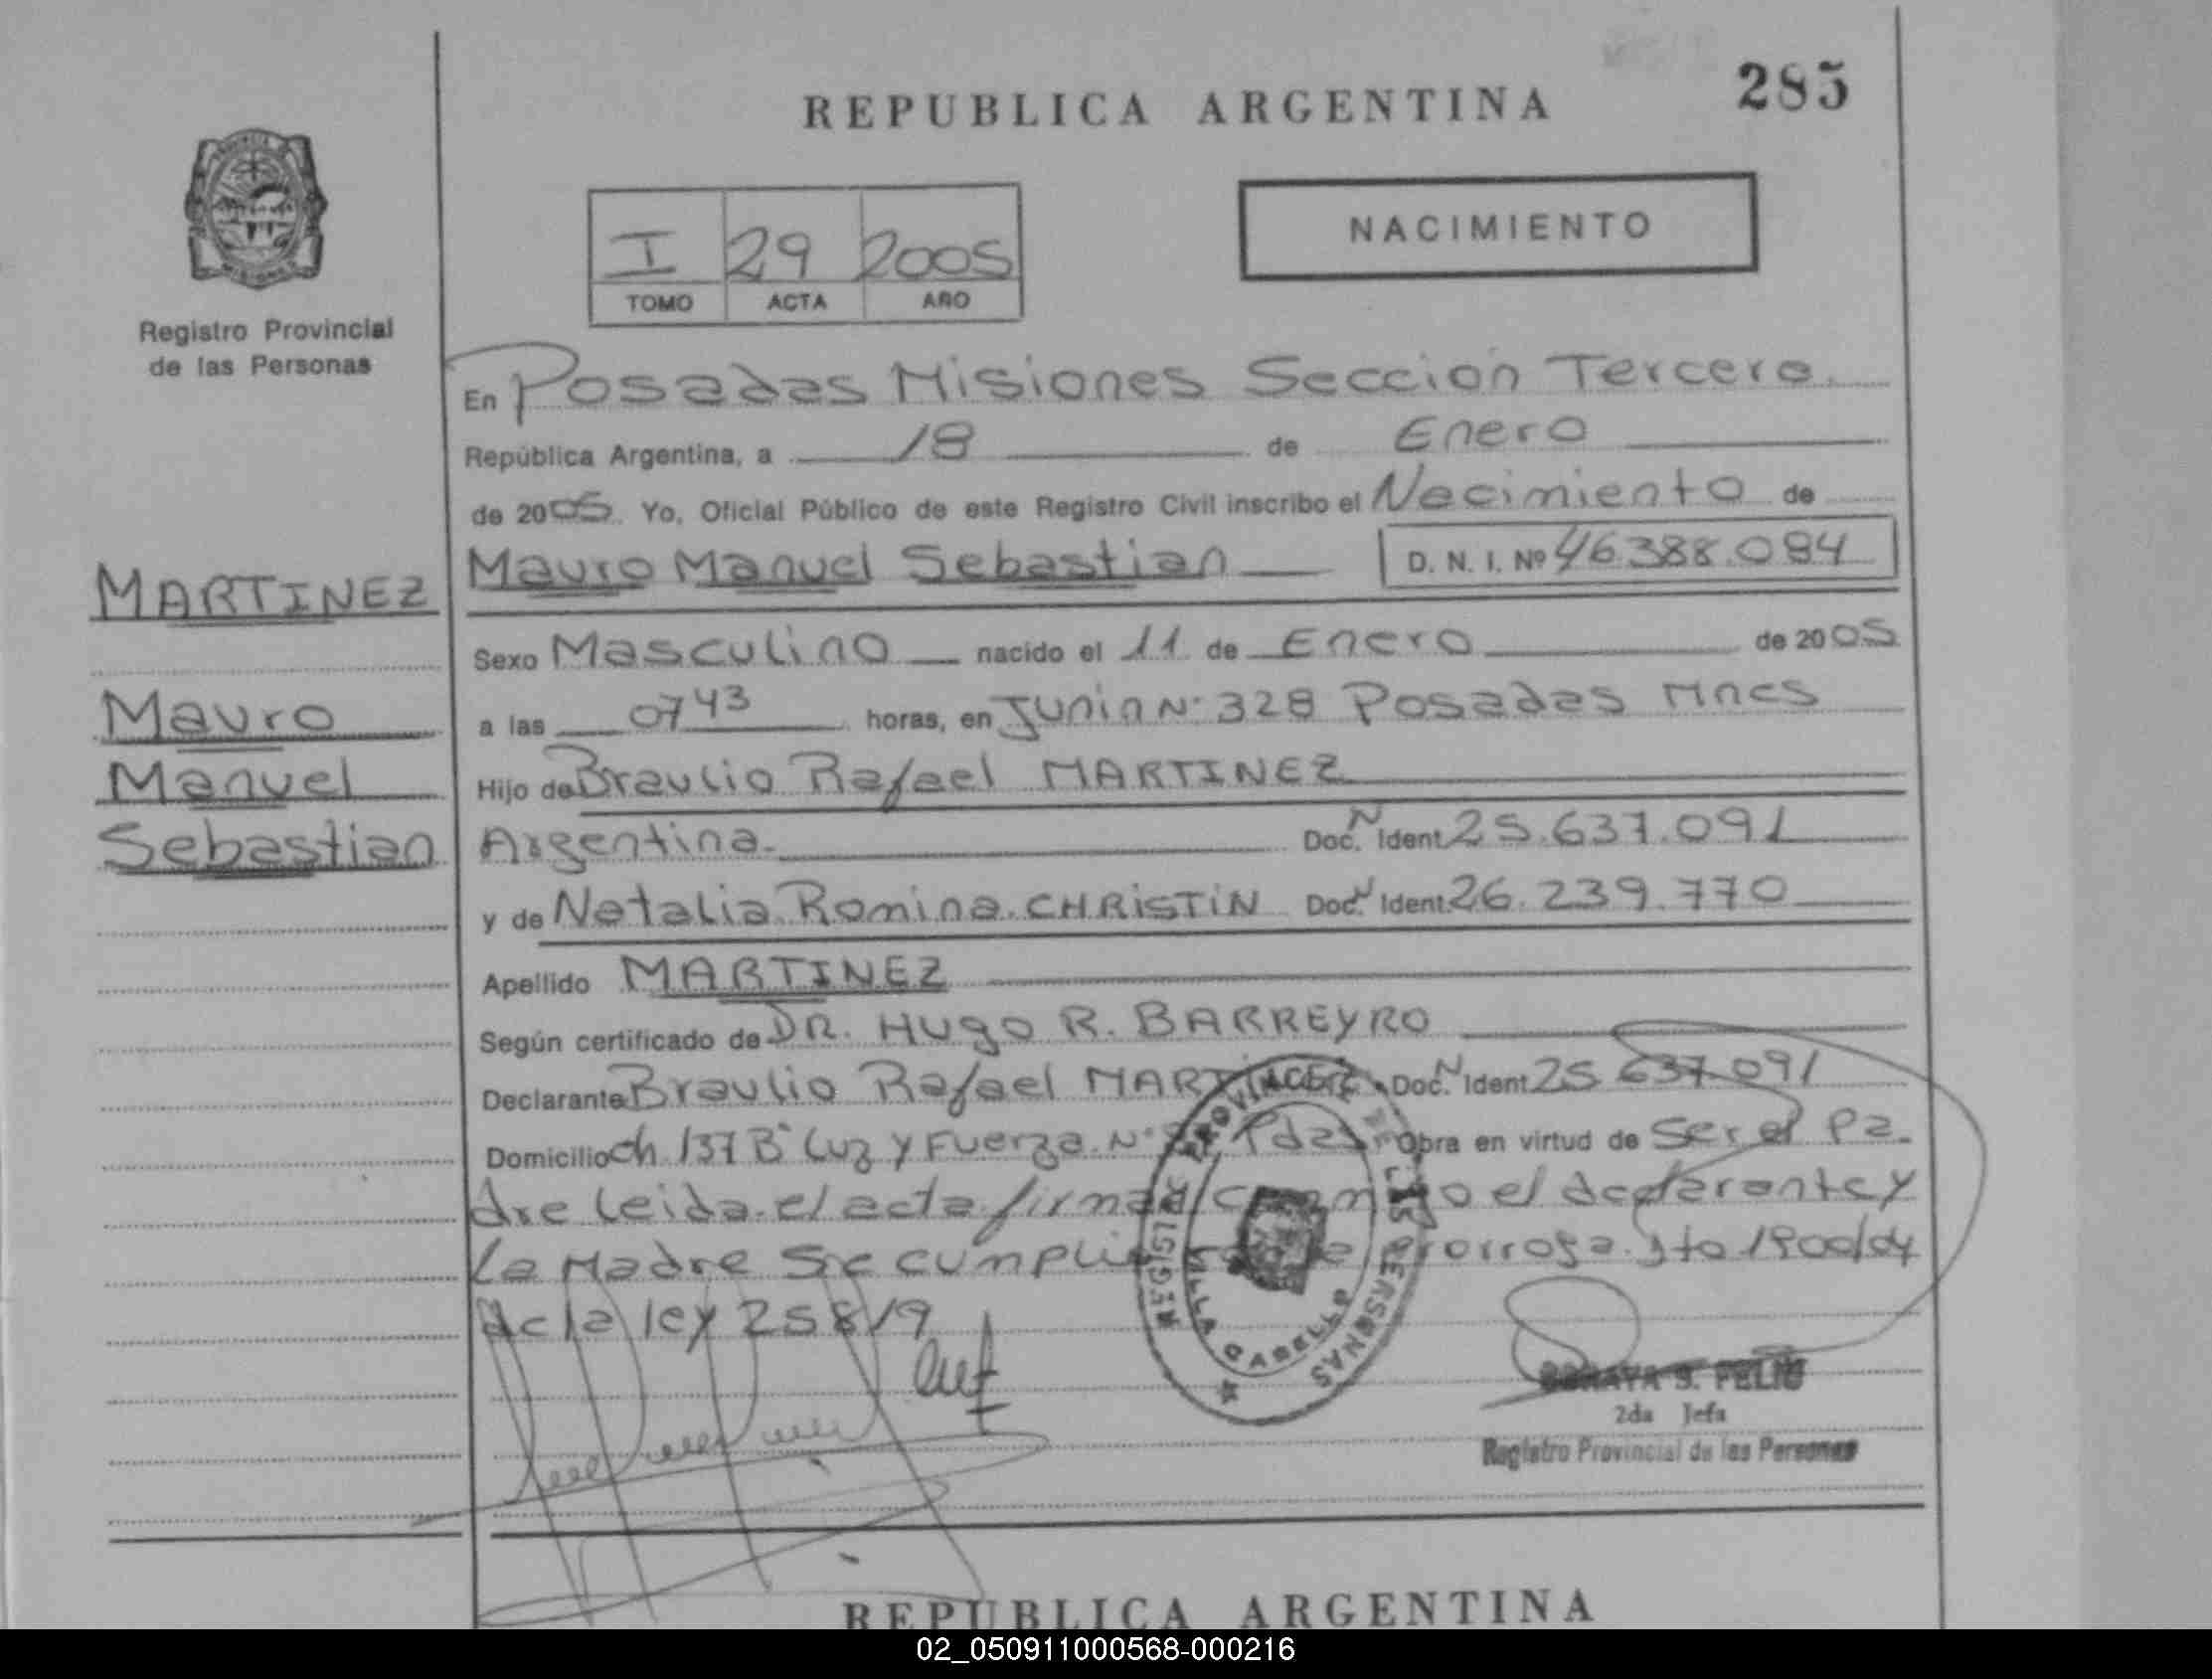 REPUBLICA ARGENTINA
285
I 29 2005
TOMO ACTA AÑO
NACIMIENTO
Registro Provincial
de las Personas
En Posadas Misiones Sección Tercera
República Argentina, a 18 de Enero
de 2005. Yo, Oficial Público de este Registro Civil inscribo el Nacimiento de
Mauro Manuel Sebastian D. N. I. Nº 46.388.084
MARTINEZ
Sexo Masculino nacido el 11 de Enero de 2005
Mauro
a las 07 43 horas, en Junin Nº 328 Posadas Mnes
Manuel
Hijo de Braulio Rafael MARTINEZ
Sebastian
Argentina. Doc. N Ident. 25.637.091
y de Natalia Romina CHRISTIN Doc. N Ident. 26.239.770
Apellido MARTINEZ
Según certificado de DR. HUgo R. BARREYRO
Declarante Braulio Rafael MARTINEZ Doc. N Ident. 25.637.091
Domicilio Ch 137 Bº Luz y Fuerza Nº Pdas Obra en virtud de ser el Pa-
dre leida el acta firman conmigo el declarante y
La Madre se cumplio prorroga Dto 1900/04
de la ley 25819
REGISTRO PROVINCIAL DE LAS PERSONAS
VILLA CABELLO
SORAYA S. FELIU
2da Jefa
Registro Provincial de las Personas
REPUBLICA ARGENTINA
02_050911000568-000216